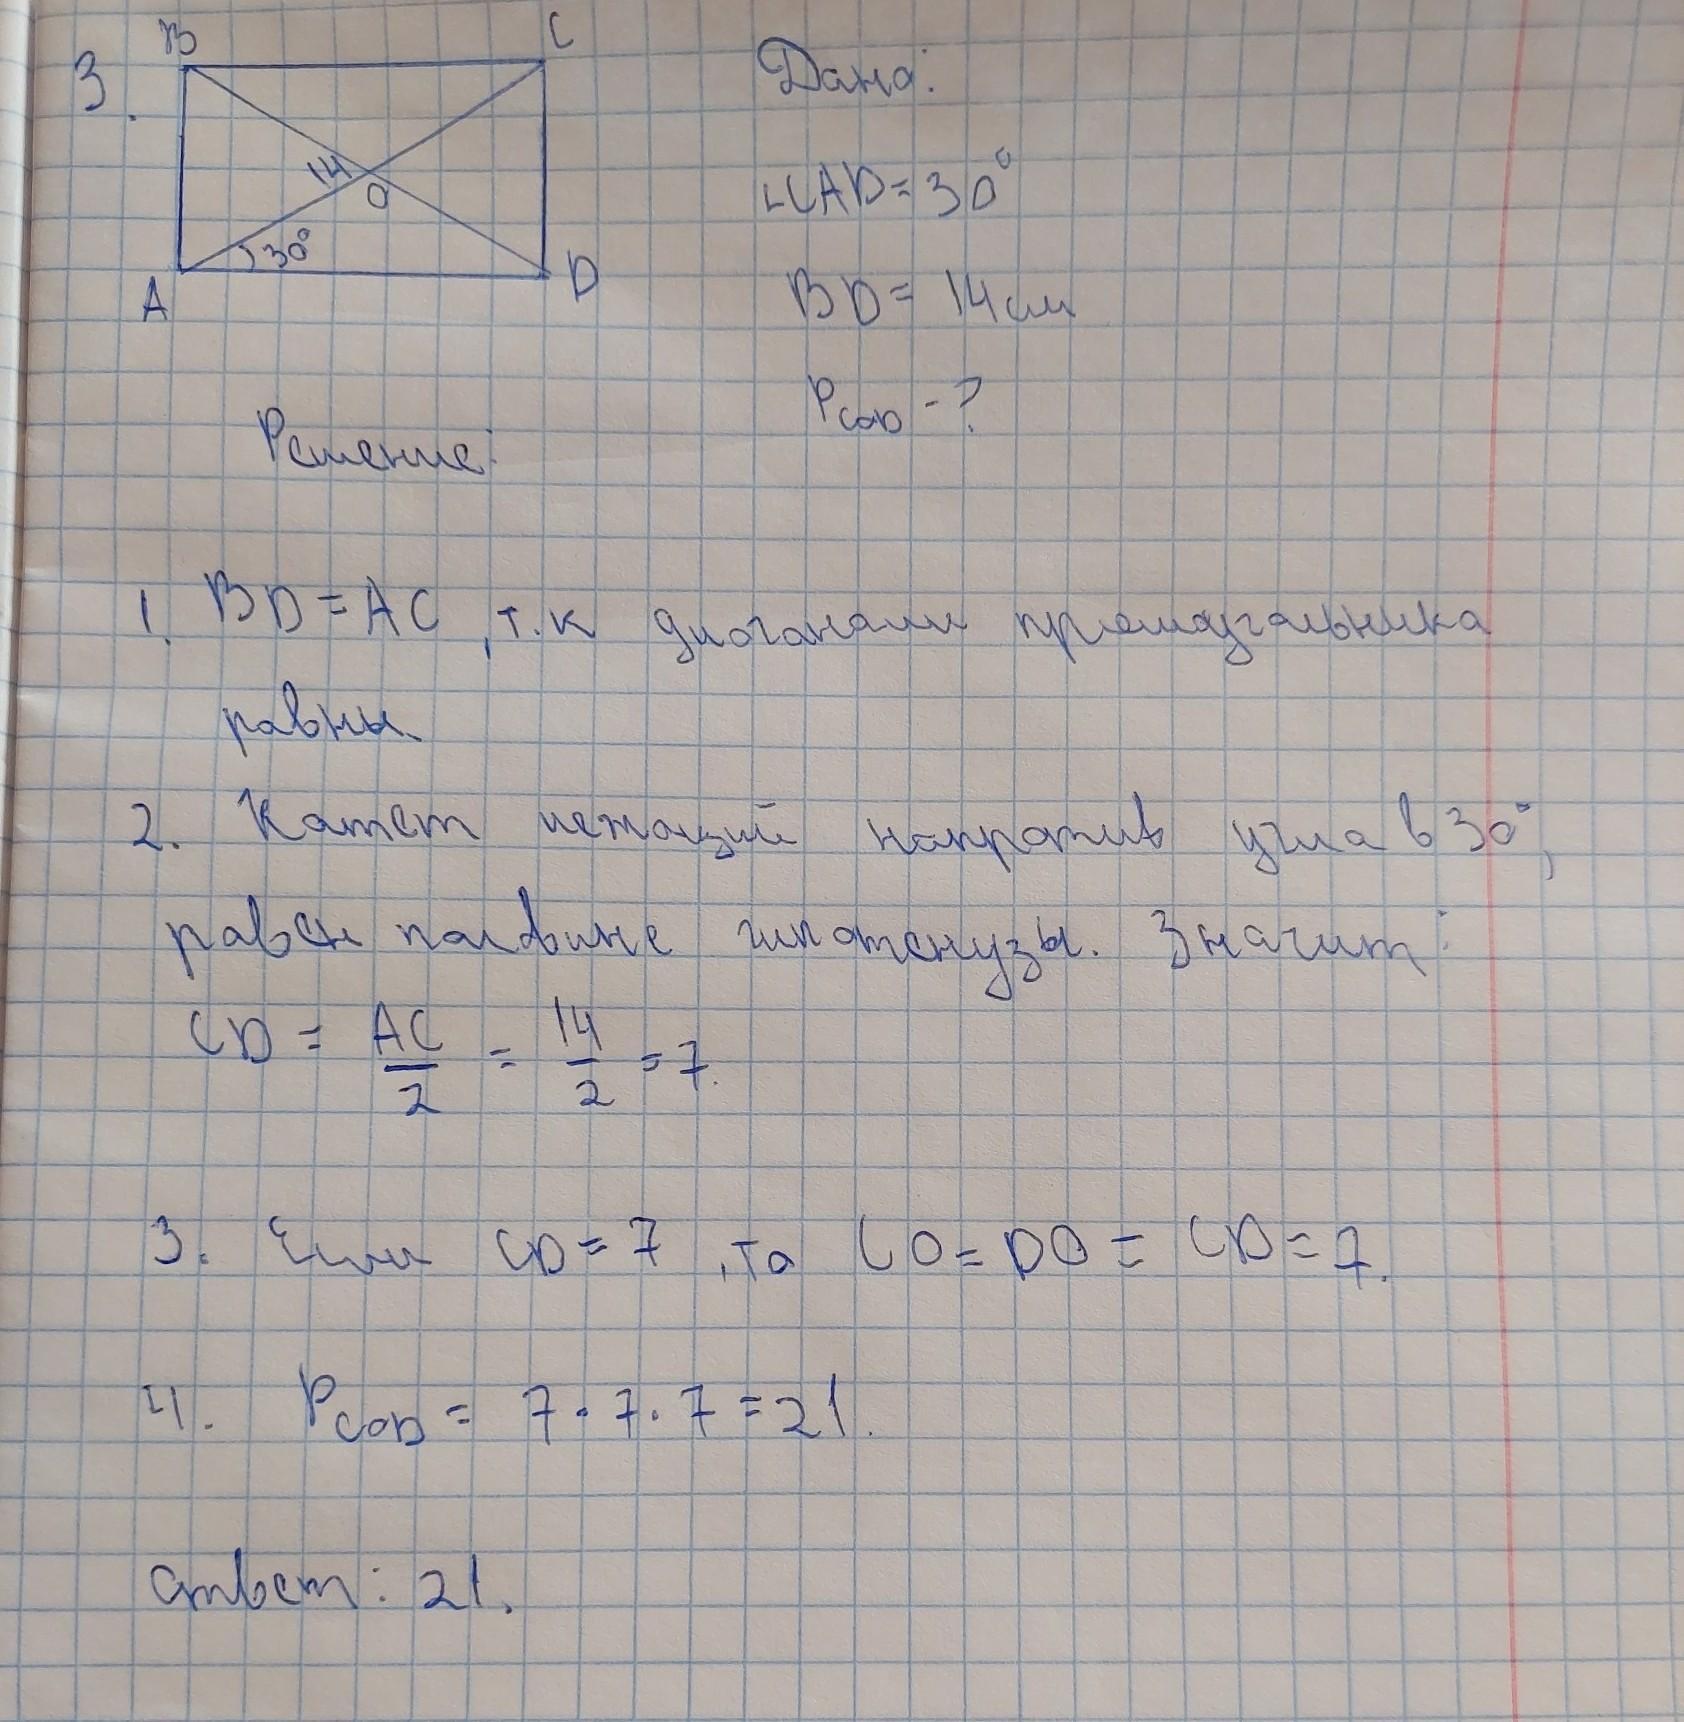 3.
B
C
14
O
30°
A
D
Дано:
∟CAD = 30°
BD = 14 см
P_COD - ?
Решение:
1. BD = AC, т.к диогонали прямоугольника
равны.
2. Катет лежащий напротив угла в 30°,
равен половине гипотенузы. Значит:
CD = AC/2 = 14/2 = 7.
3. Если CD = 7, то CO = DO = CD = 7.
4. P_COD = 7 · 7 · 7 = 21.
Ответ: 21.